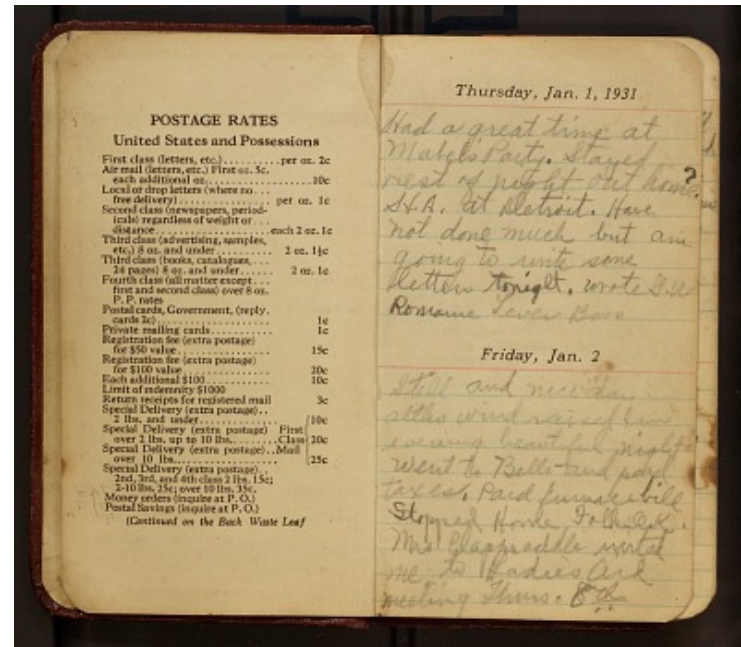 POSTAGE RATES
United States and Possessions
First class (letters, etc.)..........per oz. 2c
Air mail (letters, etc.) First oz. 5c.
each additional oz...................10c
Local or drop letters (where no...
free delivery)................... per oz. 1c
Second class (newspapers, period-
icals) regardless of weight or...
distance....................each 2 oz. 1c
Third class (advertising, samples,
etc.) 8 oz. and under....... 2 oz. 1½c
Third class (books, catalogues,...
24 pages) 8 oz. and under...... 2 oz. 1c
Fourth class (all matter except...
first and second class) over 8 oz.
P. P. rates
Postal cards, Government, (reply.
cards 2c)................... 1c
Private mailing cards........... 1c
Registration fee (extra postage)
for $50 value................ 15c
Registration fee (extra postage)
for $100 value............... 20c
Each additional $100........... 10c
Limit of indemnity $1000
Return receipts for registered mail 3c
Special Delivery (extra postage)..
2 lbs. and under............. 10c
Special Delivery (extra postage) First
over 2 lbs. up to 10 lbs......Class 20c
Special Delivery (extra postage)..Mail
over 10 lbs................. 25c
Special Delivery (extra postage)..
2nd, 3rd, and 4th class 2 lbs. 15c;
2-10 lbs. 25c; over 10 lbs. 35c.
Money orders (inquire at P. O.)
Postal Savings (inquire at P. O.)
(Continued on the Back Waste Leaf
Thursday, Jan. 1, 1931
Had a great time at
Mabel's Party. Stayed
rest of night out home?
S.H.A. at Detroit. Have
not done much but am
going to write some
letters tonight. wrote
Romaine
Friday, Jan. 2
Still and nice day
wind
evening beautiful night
Went to Belle and paid
taxes. Paid furnace bill
Stopped Home, Folks O.K.
Mrs invited
me to Ladies Aid
meeting Thurs. 8th